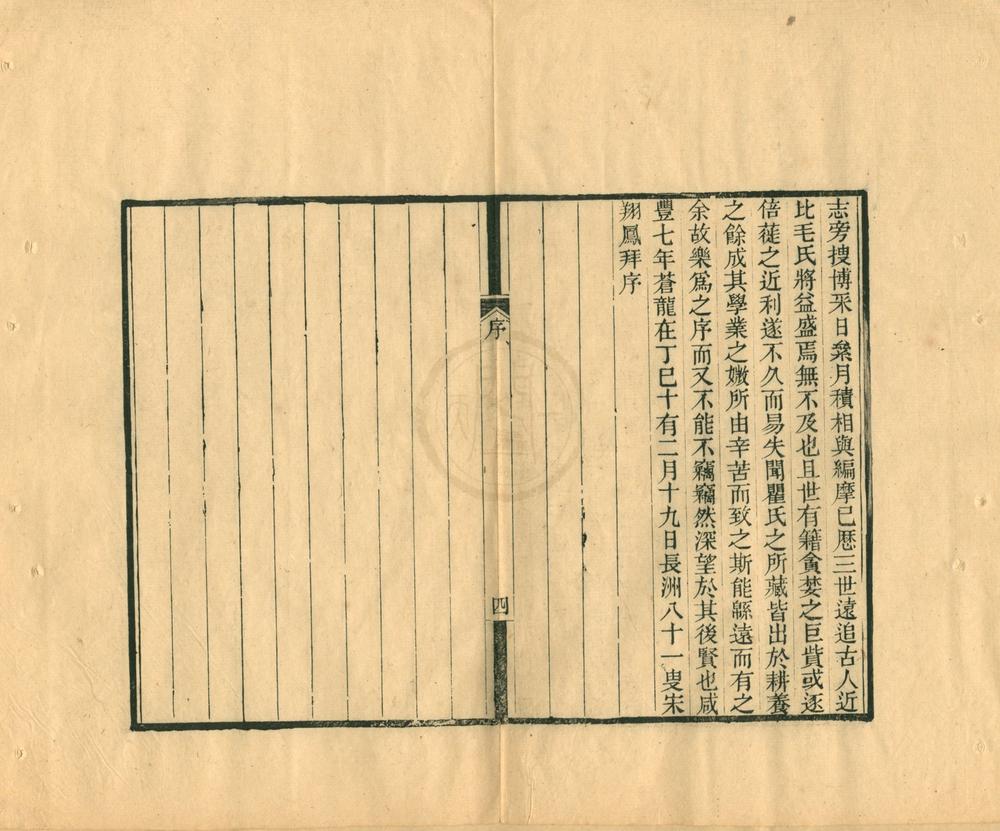 志旁搜博采日絫月積相與編摩已歷三世遠追古人近
比毛氏將益盛焉無不及也且世有籍貪婪之巨貲或逐
倍蓰之近利遂不久而易失聞瞿氏之所藏皆出於耕養
之餘成其學業之媺所由辛苦而致之斯能緜遠而有之
余故樂爲之序而又不能不竊竊然深望於其後賢也咸
豐七年蒼龍在丁巳十有二月十九日長洲八十一叟宋
翔鳳拜序
序
四